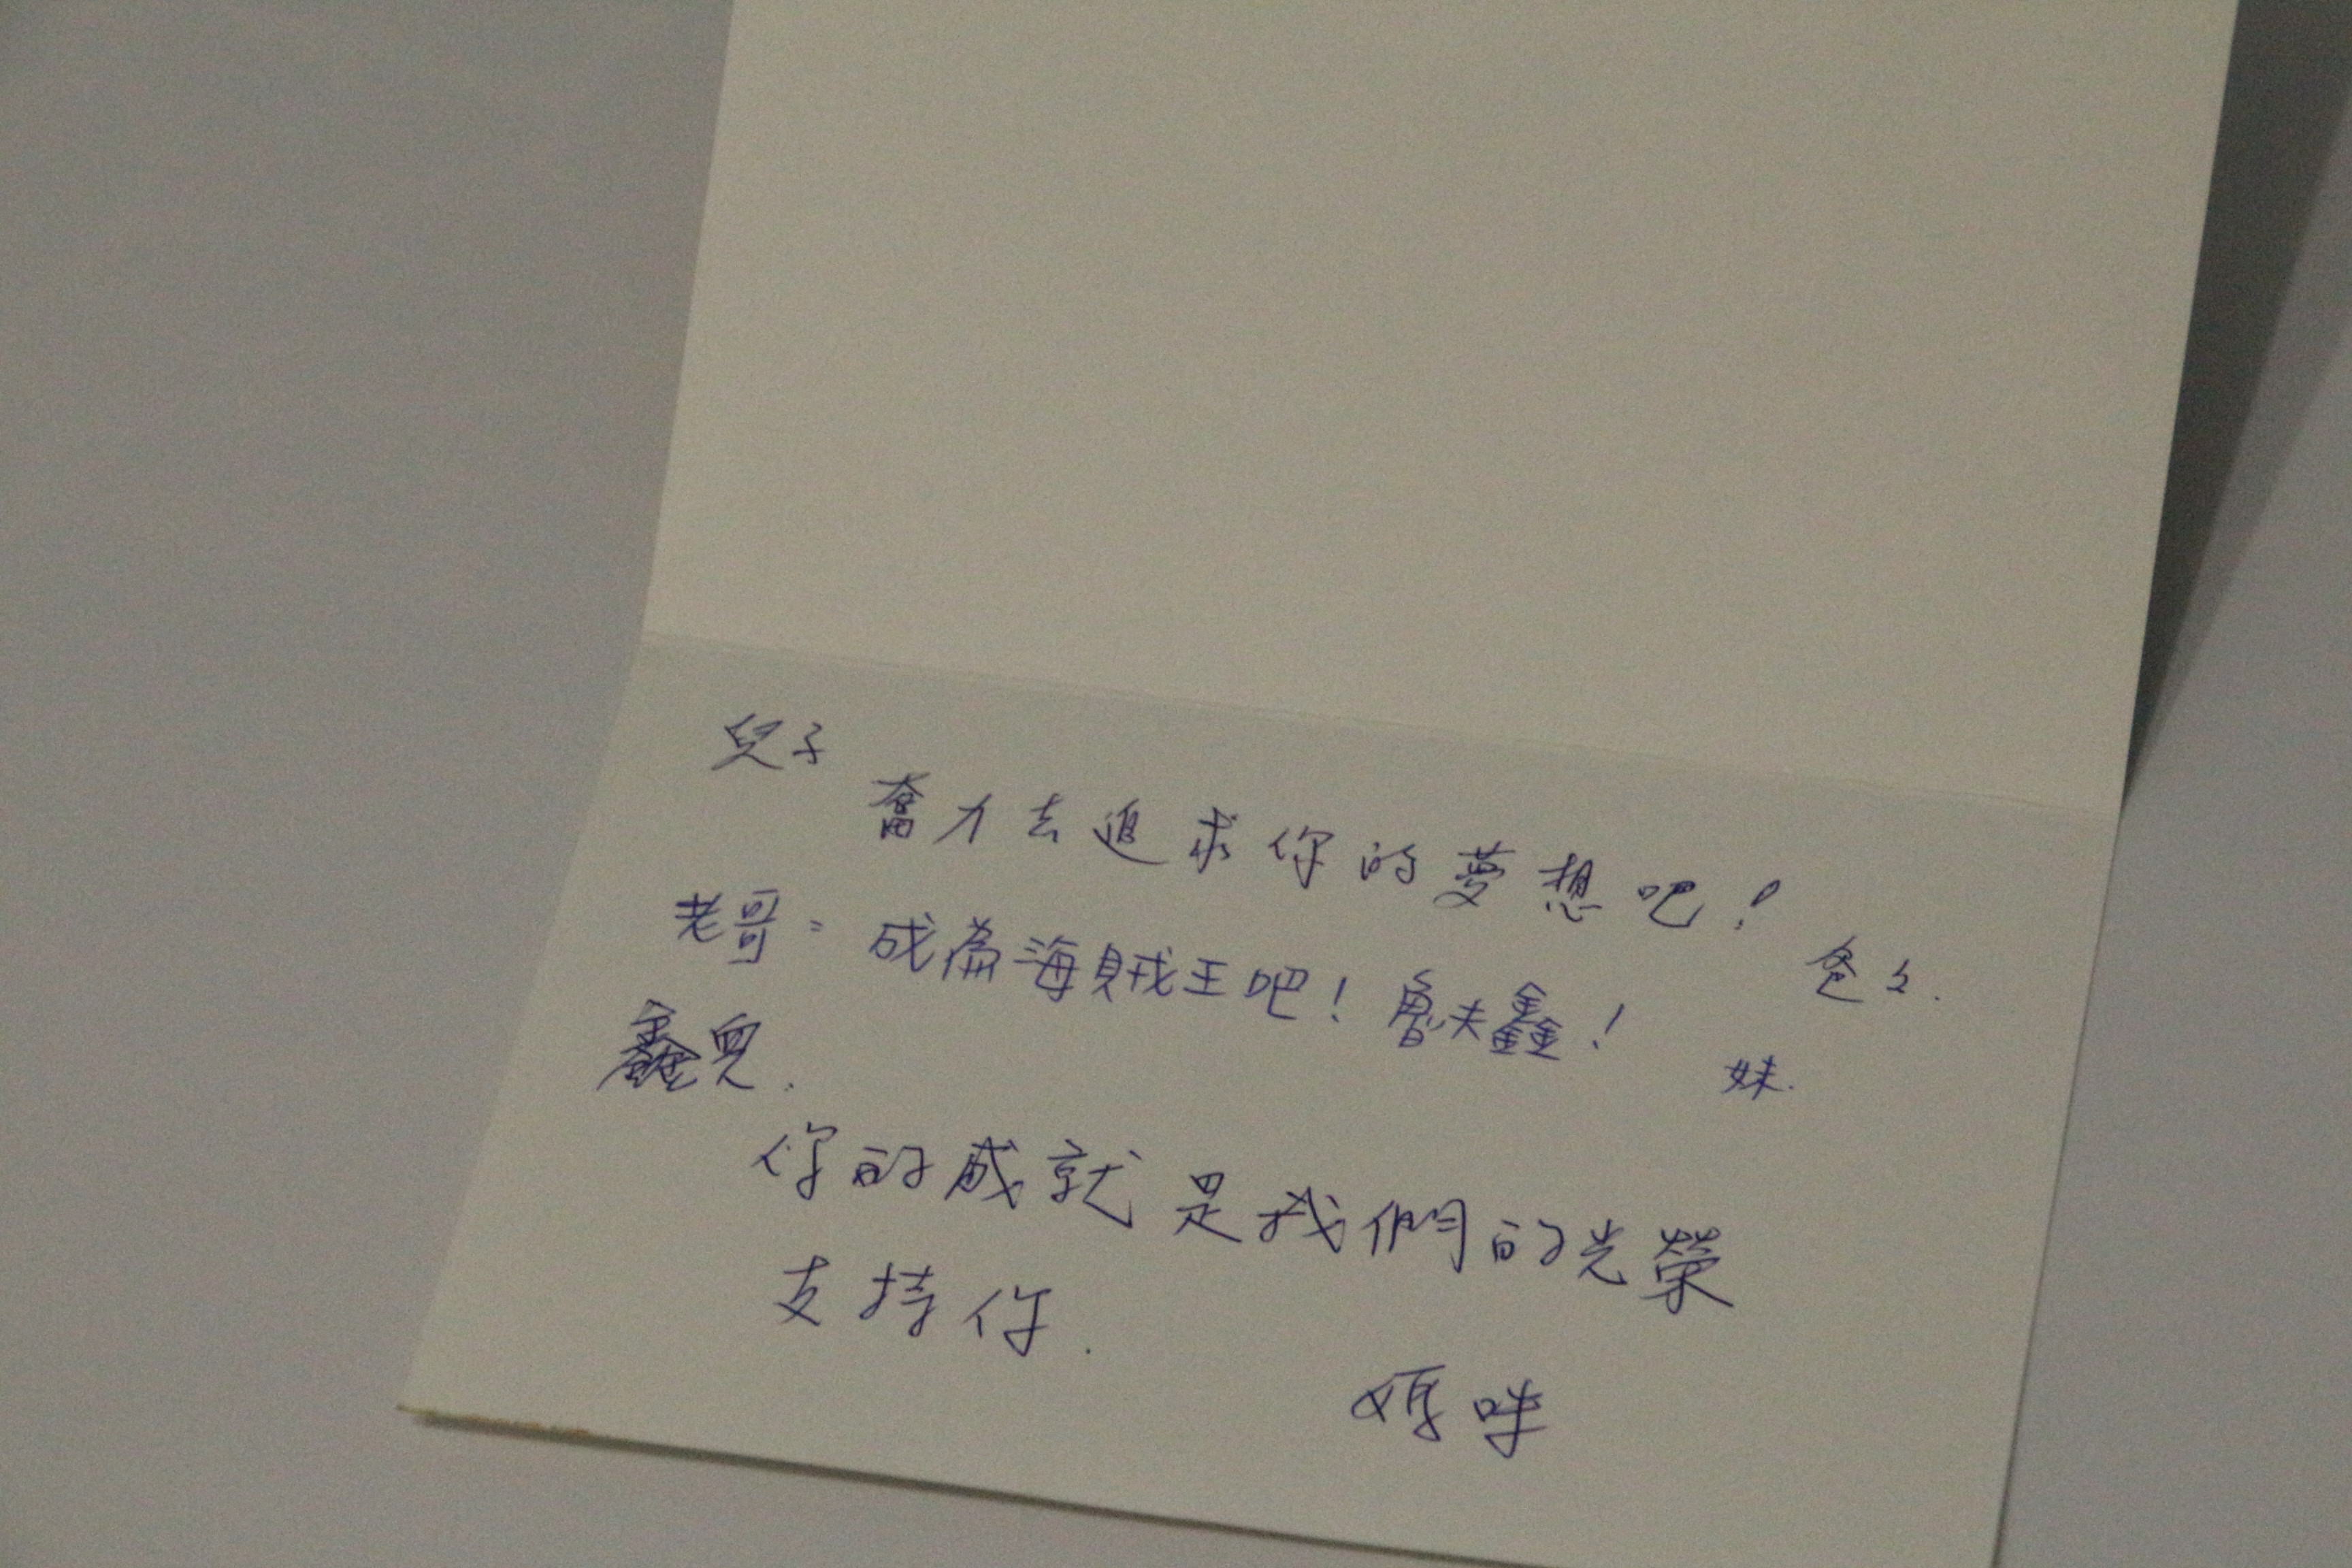 兒子
奮力去追求你的夢想吧!
爸々.
老哥: 成為海賊王吧! 魯夫鑫!
妹.
鑫兒.
你的成就是我們的光榮
支持你.
媽咪